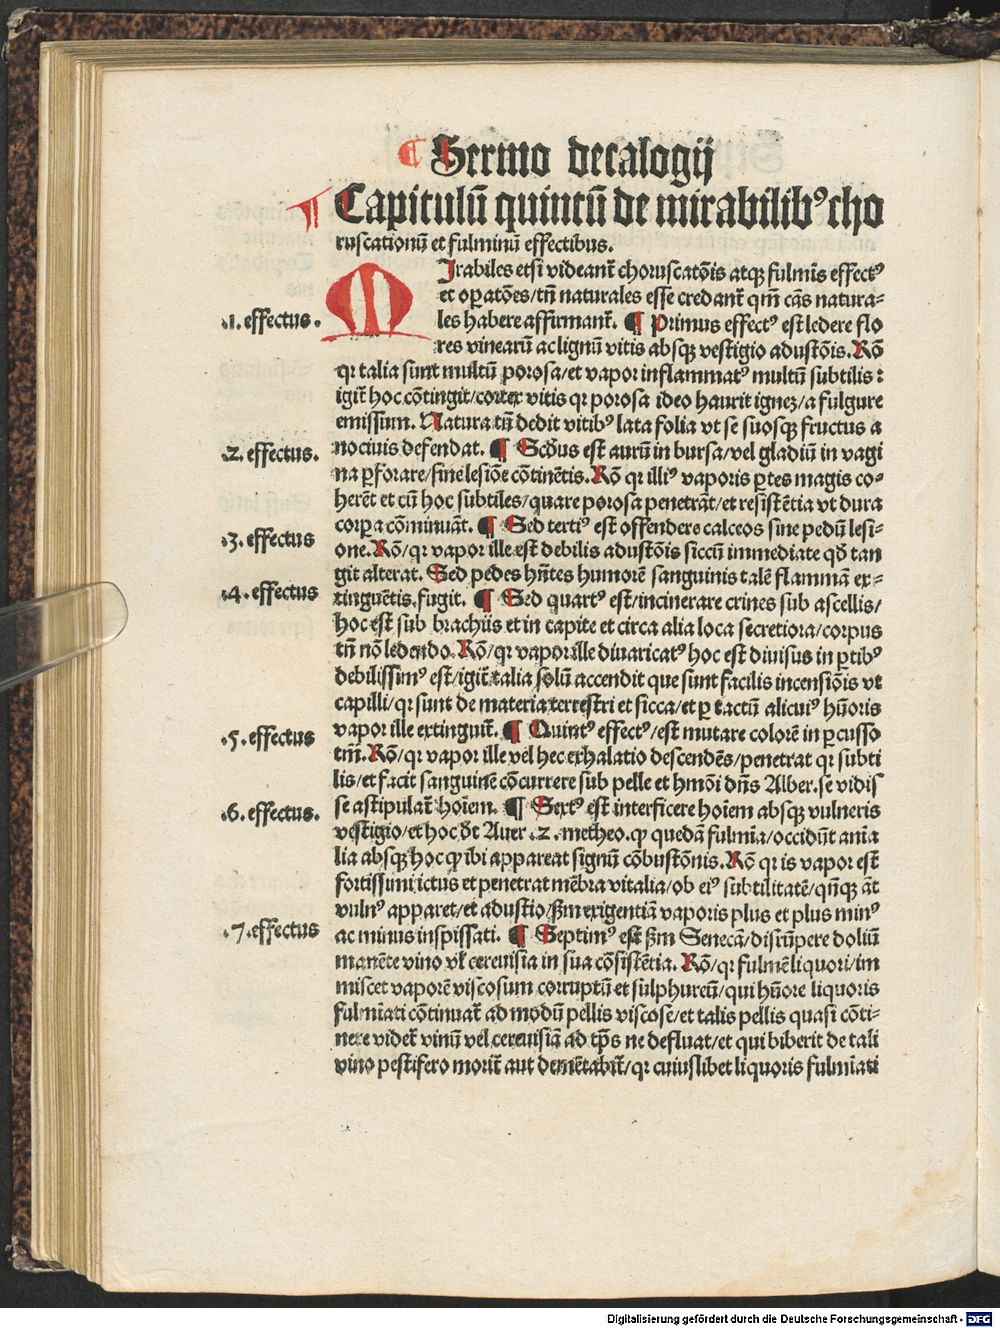 ¶ Sermo decalogij
¶ Capitulū quintū de mirabilibꝰ cho
ruscationū et fulminū effectibus.
MIrabiles etsi videant᷑ choruscatōis atqꝫ fulmīs effectꝰ
et oꝑatōes/tn̄ naturales esse credant᷑ qm̄ cās natura⸗
les habere affirmant᷑. ¶ Primus effectꝰ est ledere flo
.1. effectus.
res vinearū ac lignū vitis absqꝫ vestigio adustōis. Rō
qꝛ talia sunt multū porosa/et vapor inflammatꝰ multū subtilis:
igit᷑ hoc cōtingit/cortex vitis qꝛ porosa ideo haurit ignez/a fulgure
emissum. Natura tn̄ dedit vitibꝰ lata folia vt se suosqꝫ fructus a
nociuis defendat. ¶ Scd̄us est aurū in bursa/vel gladiū in vagi
.2. effectus.
na ꝑforare/sine lesiōe cōtinētis. Rō qꝛ illiꝰ vaporis ꝑtes magis co⸗
herēt et cū hoc subtiles/quare porosa penetrāt/et resistētia vt dura
corꝑa cōminuāt. ¶ Sed tertiꝰ est offendere calceos sine pedū lesi⸗
.3. effectus
one. Rō/qꝛ vapor ille est debilis adustōis siccū immediate qd̄ tan
git alterat. Sed pedes hn̄tes humorē sanguinis talē flammā ex⸗
.4. effectus
tinguētis fugit. ¶ Sed quartꝰ est/incinerare crines sub ascellis/
hoc est sub brachiis et in capite et circa alia loca secretiora/corpus
tn̄ nō ledendo. Rō/qꝛ vapor ille diuaricatꝰ hoc est diuisus in ꝑtibꝰ
debilissimꝰ est/igit᷑ talia solū accendit que sunt facilis incensiōis vt
capilli/qꝛ sunt de materia terrestri et sicca/et ꝑ tactū alicuiꝰ hūoris
vapor ille extinguit᷑. ¶ Quintꝰ effectꝰ/est mutare colorē in ꝑcusso
.5. effectus
tm̄. Rō/qꝛ vapor ille vel hec exhalatio descendēs/penetrat qꝛ subti
lis/et facit sanguinē cōcurrere sub pelle et hmōi dn̄s Alber. se vidis
se astipulat᷑ hoīem. ¶ Sextꝰ est interficere hoīem absqꝫ vulneris
.6. effectus.
vestigio/et hoc dt̄ Auer .2. metheo. ꝙ quedā fulmīa/occidūt anīa
lia absqꝫ hoc ꝙ ibi appareat signū cōbustōnis. Rō qꝛ is vapor est
fortissimi ictus et penetrat mēbra vitalia/ob eiꝰ subtilitatē/qn̄qꝫ āt
vulnꝰ apparet/et adustio/ẜm exigentiā vaporis plus et plus minꝰ
ac minus inspissati. ¶ Septimꝰ est ẜm Senecā/disrūpere doliū
.7. effectus
manēte vino vł ceruisia in sua cōsistētia. Rō/qꝛ fulmē liquori/im
miscet vaporē viscosum corruptū et sulphureū/qui hūore liquoris
fulmīati continuat᷑ ad modū pellis viscose/et talis pellis quasi cōti⸗
nere videt᷑ vinū vel ceruisiā ad tp̄s ne defluat/et qui biberit de tali
vino pestifero morit᷑ aut demētabit᷑/qꝛ cuiuslibet liquoris fulmīati